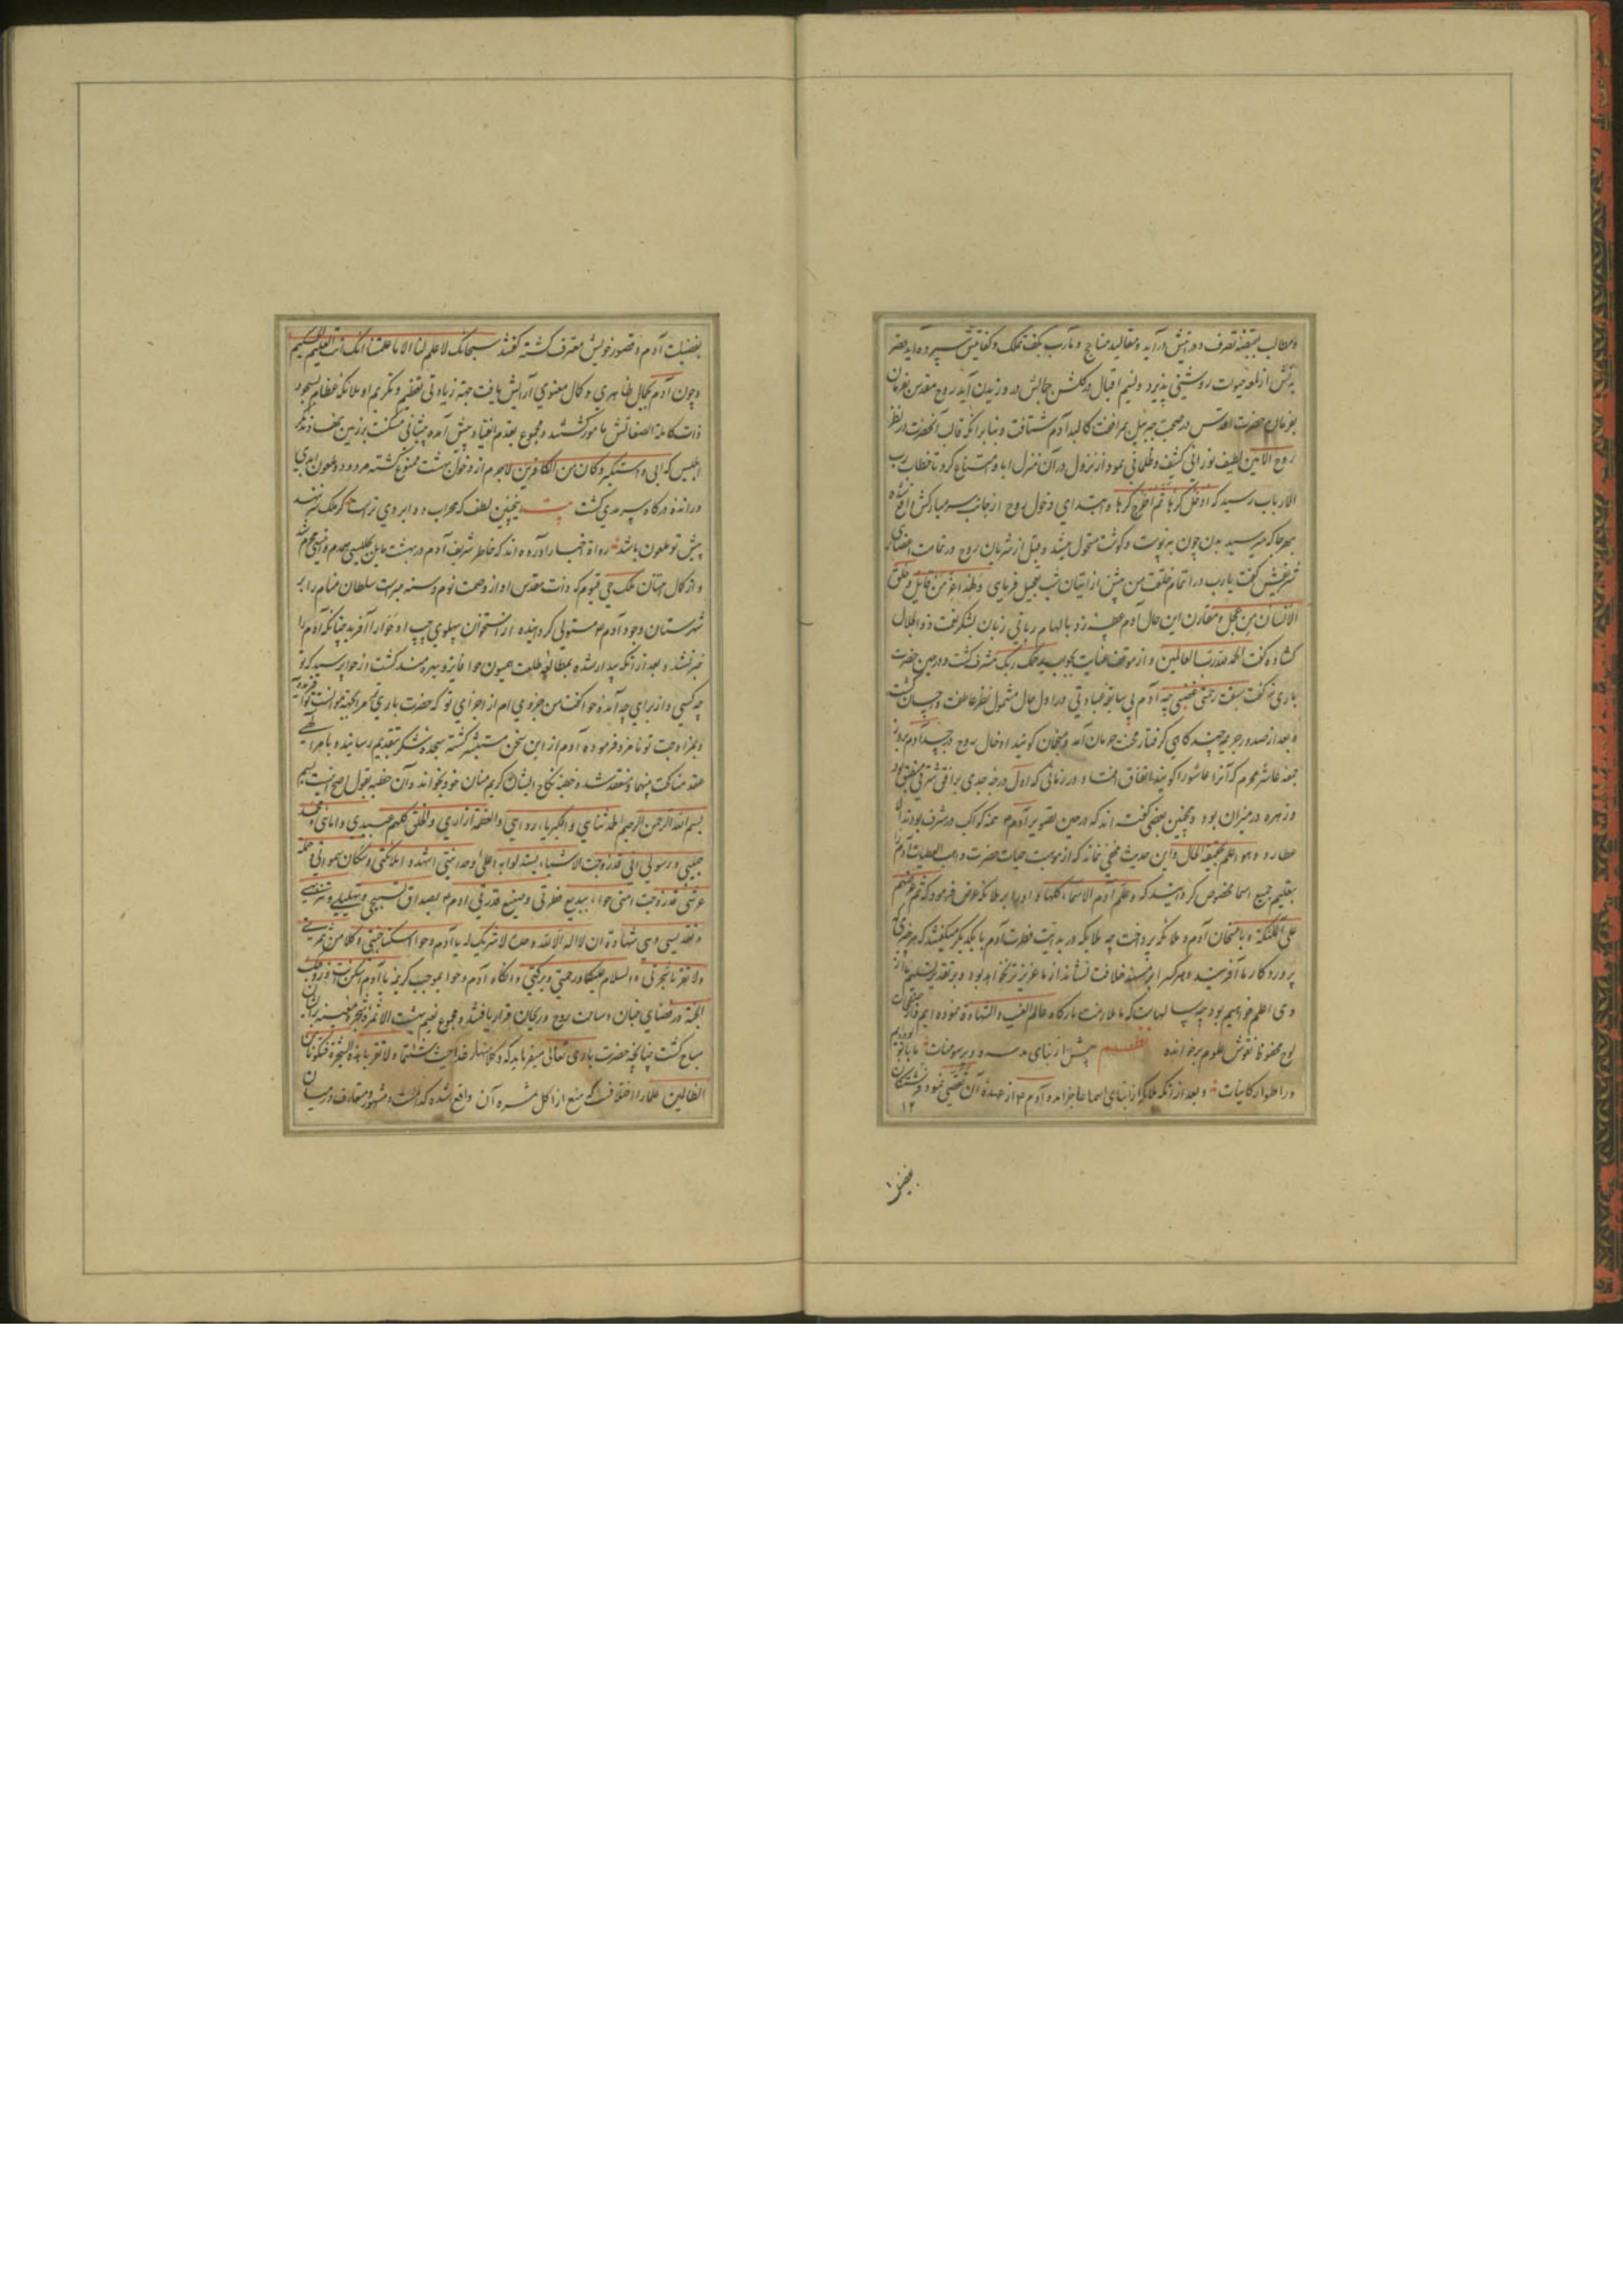 و مطالب بقبضهٔ تصرف و درایتش درآید و مقالید مناجح و مآرب بکف تملک و کفایتش سپرده آید قصر
بدنش از لمعهٔ حیوت روشنی پذیرد و نسیم اقبال در گلشن جمالش در وزیدن آید روح مقدس بفرمان
بفرمان حضرت اقدس در صحبت جبرئیل بمرافقت کالبد آدم شتافت و بنابر آنکه قالب آنحضرت در نظر
روح الامین لطیف نورانی کثیف و ظلمانی نمود از نزول در آن منزل ابا و امتناع کرد تا خطاب رب
الارباب رسید که ادخل کرها ثم اخرج کرها و ابتدای دخول روح از جانب سر مبارکش واقع شده
بهرجا که میرسید بدن چون به پوست و گوشت متحول میشد و قبل از شریان روح در تمامت اعضای
شریفش گفت یارب در اتمام خلقت من پیش از اتیان شب تعجیل فرمای ولهذا عز من قایل و خلق
الانسان من عجل و مقارن این حال آدم عطسه زد بالهام ربانی زبان بشکر نعت ذو الجلال
گشاده گفت الحمد لله رب العالمین و از موقف عنایت بجواب یرحمک ربک مشرف گشت و در حین حضرت
باری گفت سبقت رحمتی غضبی چه آدم بی سابقهٔ عبادتی در اول حال مشمول نظر عاطفت و احسان گشت
و بعد از صدور جریمه چند گاهی گرفتار محنت حرمان آمد و منجمان گویند ادخال روح در جسد آدم بروز
جمعه عاشر محرم که آنرا عاشورا گویند اتفاق افتاد در زمانی که اول درجه جدی بر افق شرقی منطبق بود
و زهره در میزان بود و همچنین بعضی گفته اند که در حین تصویر آدم همه کواکب در شرف بودند الا
عطارد و هو اعلم بحقیقة الحال و این حدیث مخفی نماند که از موهبت حیات حضرت واهب العطیات آدم را
بتعلیم جمیع اسما مخصوص گردانید که و علم آدم الاسماء کلها و او را بر ملائکه عرض فرمود که ثم عرضهم
علی الملئکة و بامتحان آدم و ملائکه پرداخت چه ملایکه در بدایت فطرت آدم با یکدیگر میگفتند که هر چیزی که
پروردگار ما آفریند و هر کس را بر مسند خلافت نشاند از ما عزیزتر نخواهد بود و بر تقدیر تسلیم ما از
وی اعلم خواهیم بود چه سالهاست که ملازمت بارگاه عالم الغیب و الشهادة نموده ایم و از صفحات
لوح محفوظ نقوش علوم برخوانده نظم پیش از بنای مدرسه و دیر سومنات ما با تو بودیم
در اطوار کاینات و بعد از آنکه ملائکه از انبای اسما عاجز آمدند آدم از عهدهٔ آن تفصی نمود فرشتگان
۱۲
بفضیلت
بفضیلت آدم و قصور خویش معترف گشته گفتند سبحانک لا علم لنا الا ما علمتنا انک انت العلیم الحکیم
و چون آدم بجمال ظاهری و کمال معنوی آرایش یافت جهة زیادتی تعظیم و تکریم او ملائکهٔ عظام بسجود
ذات کاملة الصفاتش مامور گشتند و مجموع بقدم انقیاد پیش آمده پیشانی مسکنت بر زمین نهادند مگر
ابلیس که ابی و استکبر و کان من الکافرین لاجرم از دخول بهشت ممنوع گشته مردود و ملعون ابدی
و رانده درگاه سرمدی گشت بیت اینچنین لطف که محراب دو ابروی تراست گر ملک سر ننهد
پیش تو ملعون باشد رواة اخبار آورده اند که خاطر شریف آدم در بهشت مایل بجلیسی همدم و انیسی محرم شد
و از کمال امتنان ملک حی قیوم که ذات مقدس او از وصمت نوم و سنه مبراست سلطان منام را بر
شهرستان وجود آدم مستولی گردانیده از استخوان پهلوی چپ او حوا را آفرید چنانکه آدم را
خبر نشد و بعد از آنکه بیدار شده بمطالعهٔ طلعت همیون حوا فایز و بهره مند گشت از حوا پرسید که تو
چه کسی و از برای چه آمدهٔ حوا گفت من جزوی ام از اجزای تو که حضرت باری مرا بجهة موانست تو آفریده
و بمزاوجت تو نامزد فرموده آدم از این سخن مستبشر گشته سجدهٔ شکر بتقدیم رسانیده بامر الهی
عقد مناکحت بینهما منعقد شد و خطبهٔ نکاح ایشان کریم منان خود بخواند و آن خطبه بقول اصح اینست بسم
بسم الله الرحمن الرحیم الحمد ثنایی و الکبریاء ردایی و العظمة ازاری و الخلق کلهم عبیدی و امائی و محمد
حبیبی و رسولی انی قد زوجت الاشیاء لیستدلوا به اعلی وحدانیتی اشهدوا ملائکتی و سکان سمواتی و حملة
عرشی قد زوجت امتی حواء ببدیع فطرتی و صنیع قدرتی آدم بصداق تسبیحی و تهلیلی و تنزیهی
و تقدیسی و هی شهادة ان لا اله الا الله وحده لا شریک له یا آدم و حوا اسکنا جنتی و کلا من ثمرتی
و لا تقربا شجرتی و السلام علیکما و رحمتی و برکتی و آنگاه آدم و حوا بموجب کریمهٔ یا آدم اسکن انت و زوجک
الجنة در فضای جنان و ساحت روح و ریحان قرار یافتند و مجموع نعیم بهشت الا ثمرهٔ شجرهٔ معینه بر ایشان
مباح گشت چنانچه حضرت باری تعالی میفرماید که و کلا منها رغدا حیث شئتما و لا تقربا هذه الشجرة فتکونا من
الظالمین علما را اختلافست که منع از اکل ثمره آن واقع شده کدامست و مشهور و متعارف در میان